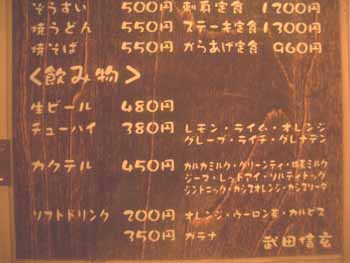 ぞうすい 500円 刺身定食 1200円
焼うどん 550円 ステーキ定食 1300円
焼そば 550円 からあげ定食 960円
<飲み物>
生ビール 480円
チューハイ 380円 レモン・ライム・オレンジ
グレープ・ライチ・グレナデン
カクテル 450円 カルカミルク・グリーンティ・抹茶ミルク
ジーマ・レッドアイ・ソルティドッグ
ジントニック・カシスオレンジ・カシスソーダ
ソフトドリンク 200円 オレンジ・ウーロン茶・カルピス
350円 ガラナ 武田信玄